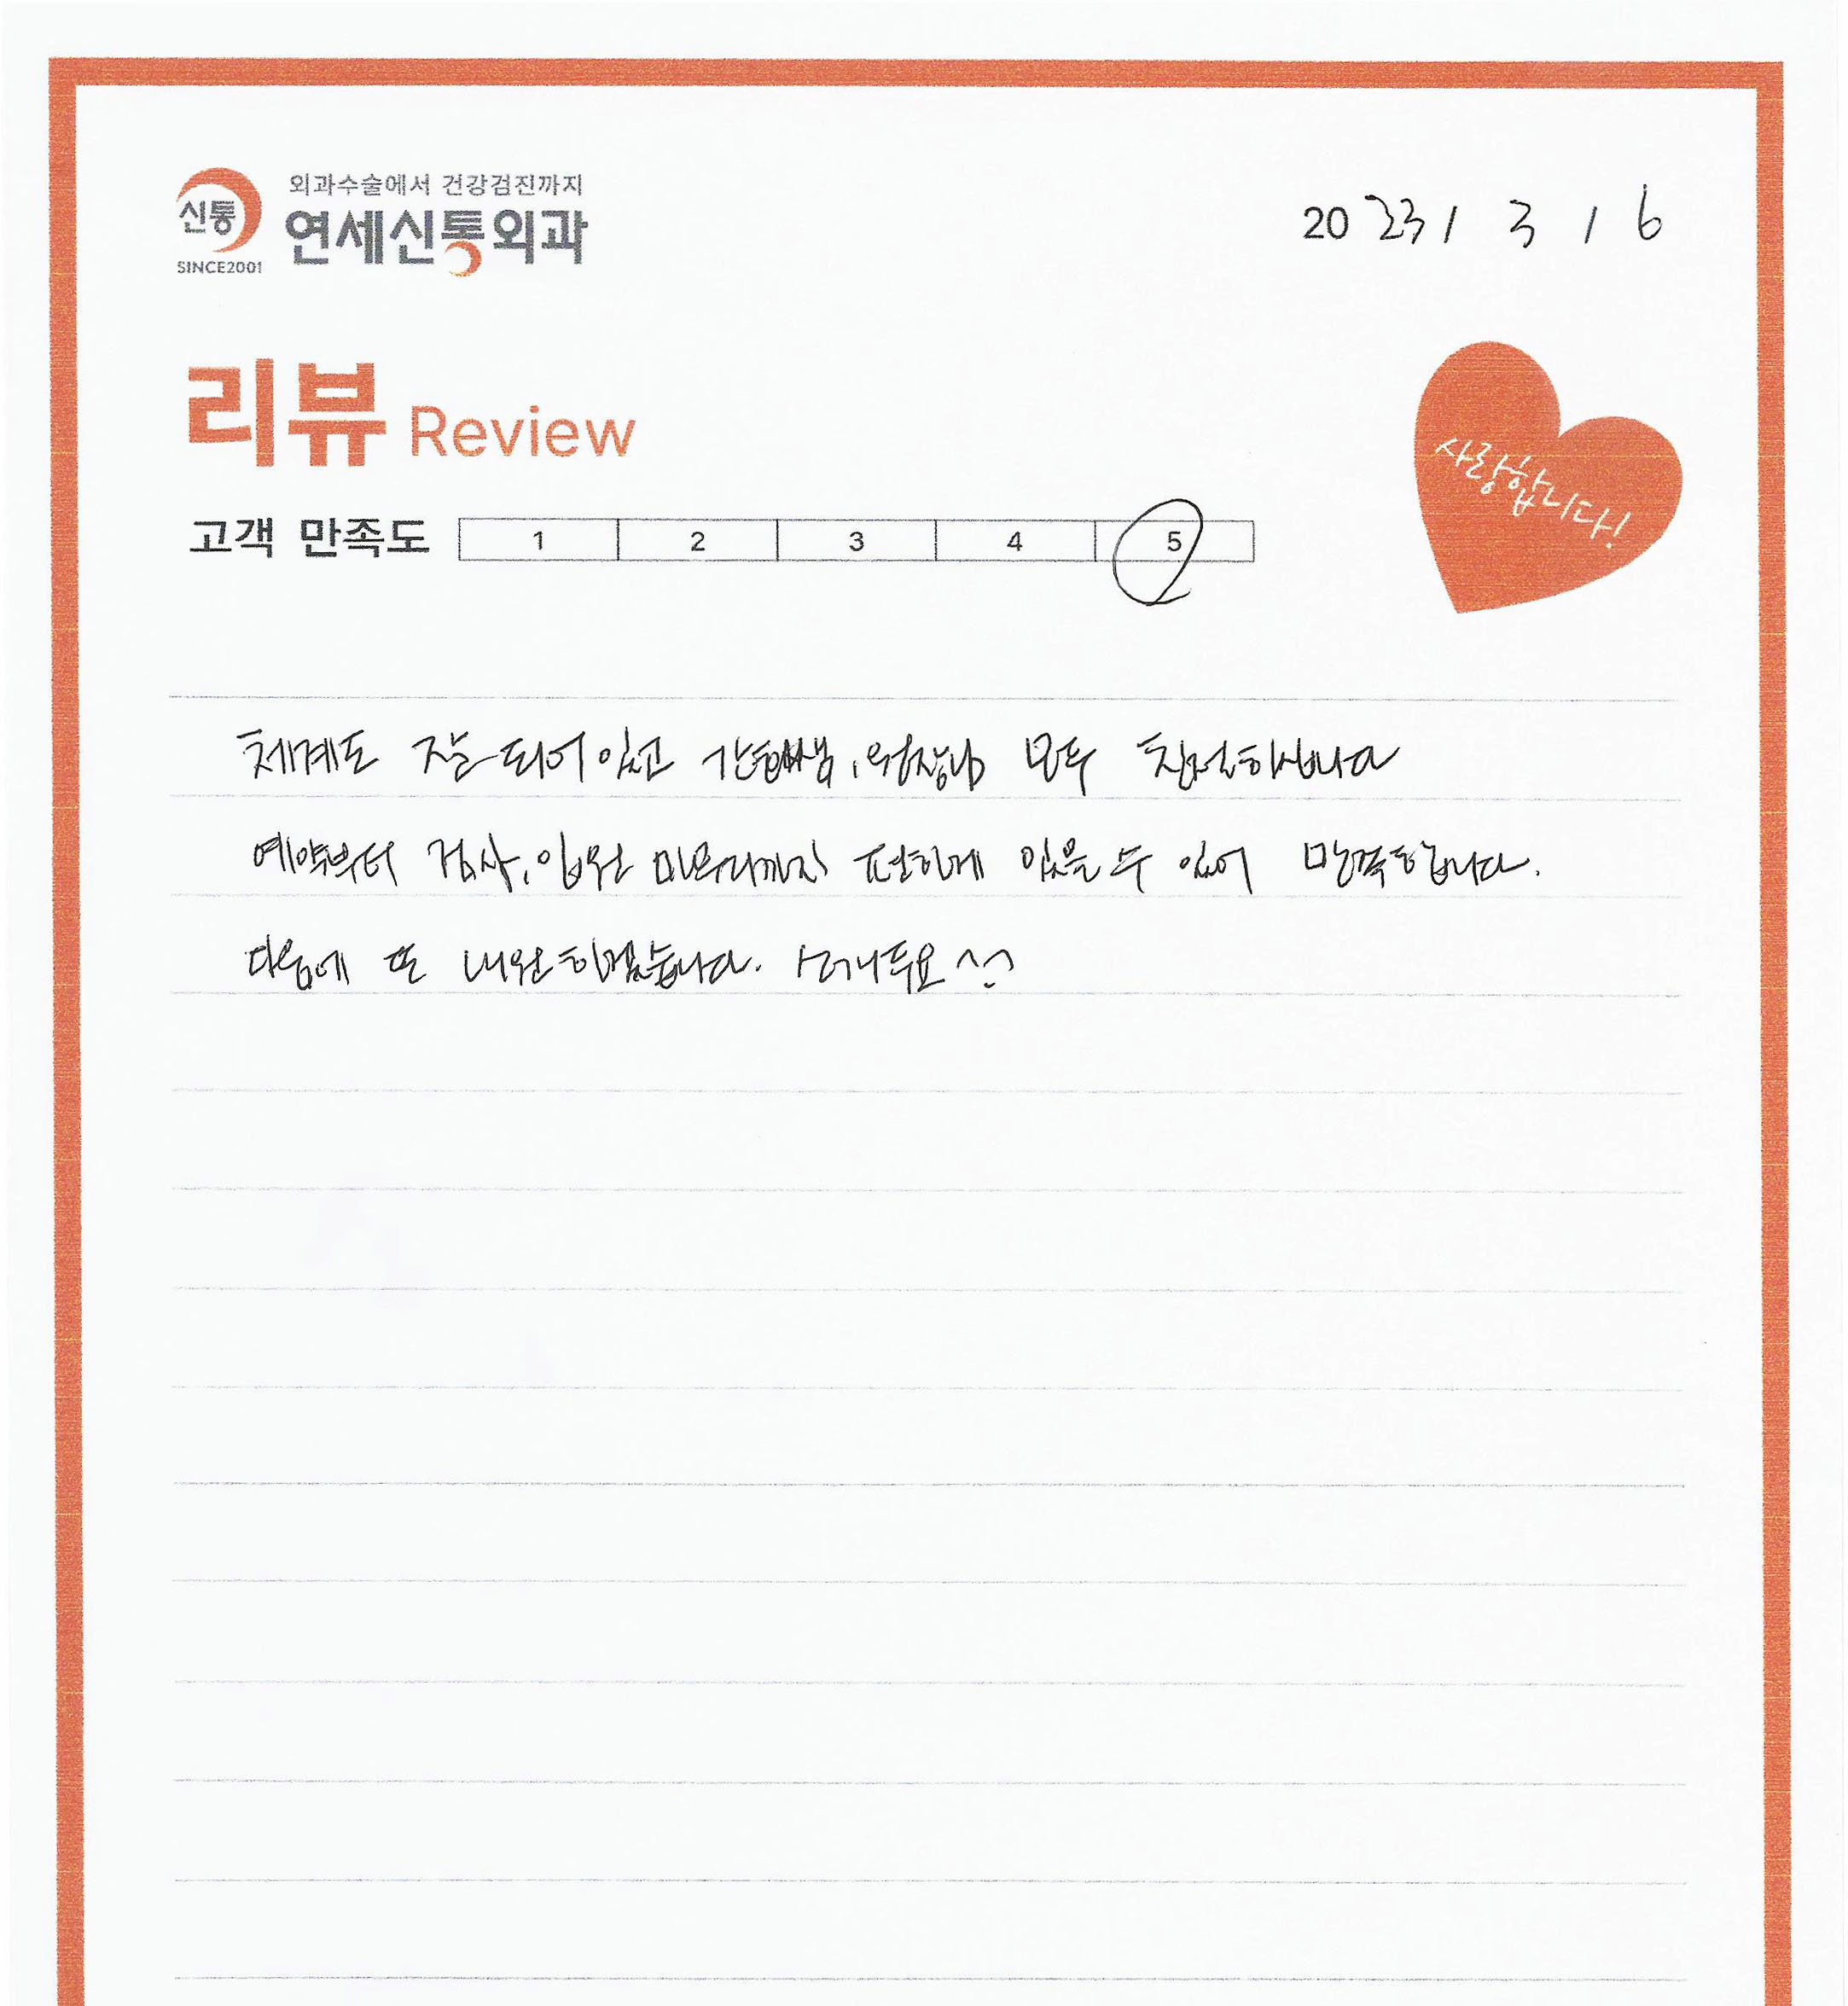 신통
SINCE2001
외과수술에서 건강검진까지
연세신통외과
2023 / 3 / 6
리뷰 Review
사랑합니다!
고객 만족도 1 2 3 4 5
체계도 잘 되어 있고 간호쌤, 원장님 모두 친절하십니다
예약부터 검사, 입원 마무리까지 편하게 있을 수 있어 만족합니다.
다음에 또 내원하겠습니다. ^^